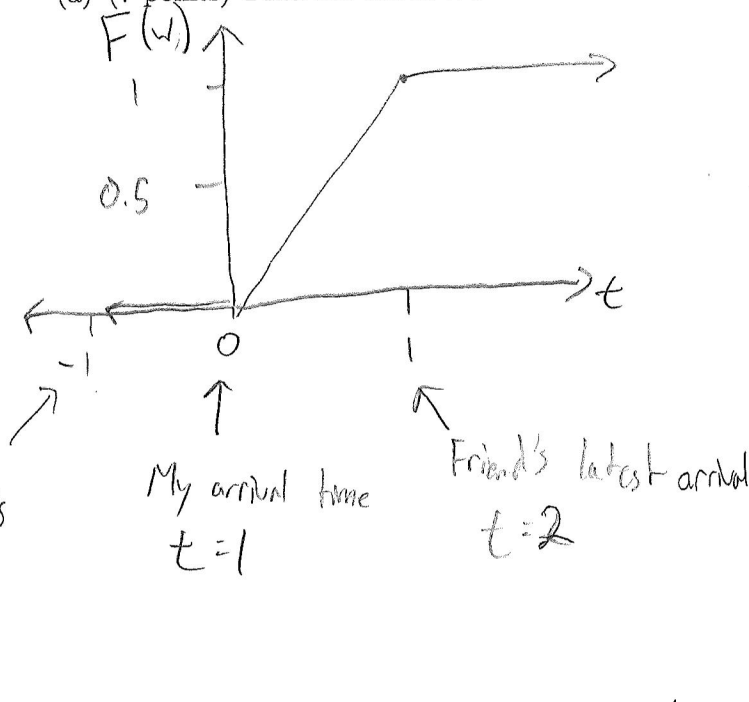 F(w)
1
0.5
t
-1
0
1
My arrival time
t=1
Friend's latest arrival
t=2
s